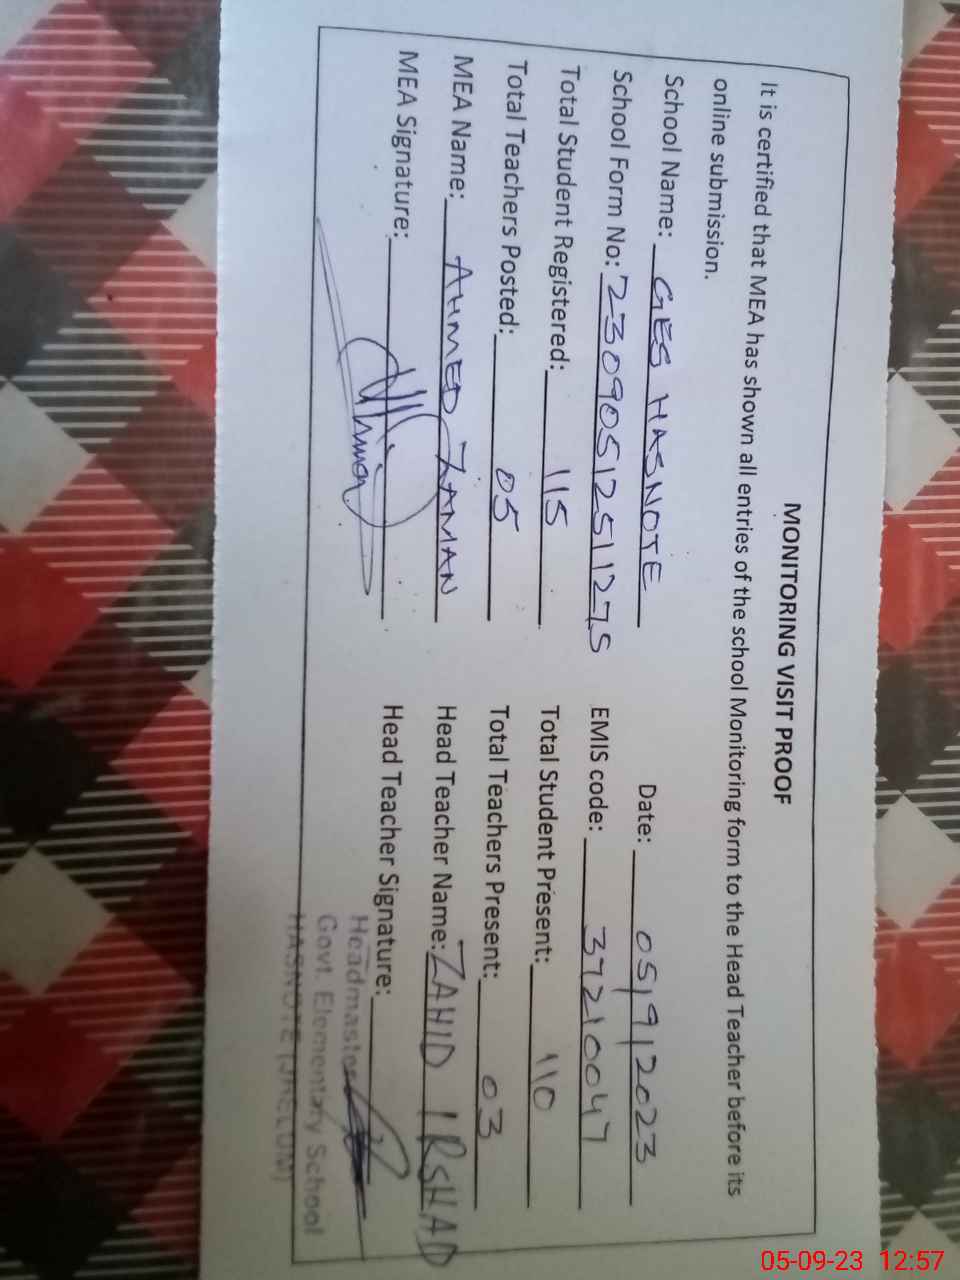 MONITORING VISIT PROOF
It is certified that MEA has shown all entries of the school Monitoring form to the Head Teacher before its
online submission.
School Name: GES HASNOTE Date: 05/9/2023
School Form No: 23090512511275 EMIS code: 37210047
Total Student Registered: 115 Total Student Present: 110
Total Teachers Posted: 05 Total Teachers Present: 03
MEA Name: AHMED ZAMAN Head Teacher Name: ZAHID IRSHAD
MEA Signature: Head Teacher Signature:
Headmaster
Govt. Elementary School
HASNOTE (JHELUM)
05-09-23 12:57